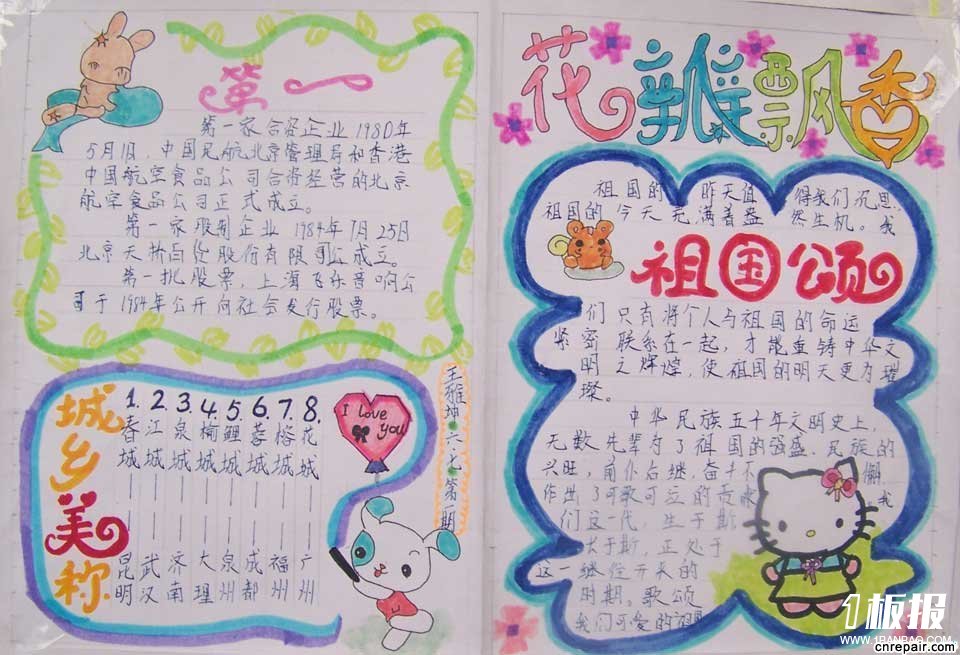 第一
第一家合资企业 1980年
5月1日，中国民航北京管理局和香港
中国航空食品公司合资经营的北京
航空食品公司正式成立。
第一家股制企业 1984年7月25日
北京天桥百货股份有限公司成立。
第一批股票，上海飞乐音响公
司于1984年公开向社会发行股票。
城乡美称
1.春城——昆明
2.江城——武汉
3.泉城——济南
4.榆城——大理
5.鲤城——泉州
6.蓉城——成都
7.榕城——福州
8.花城——广州
I love
you
王雅坤·六·第一期
花瓣飘香
祖国的昨天值得我们沉思
祖国的今天充满着盎然生机。我
祖国颂
们只有将个人与祖国的命运
紧密联系在一起，才能重铸中华文
明之辉煌，使祖国的明天更为璀
璨。
中华民族五千年文明史上，
无数先辈为了祖国的强盛、民族的
兴旺，前仆后继，奋斗不懈
作出了可歌可泣的贡献。我
们这一代，生于斯
长于斯，正处于
这一继往开来的
时期。歌颂
我们可爱的祖国
1板报
WWW.1BANBAO.COM
cnrepair.com